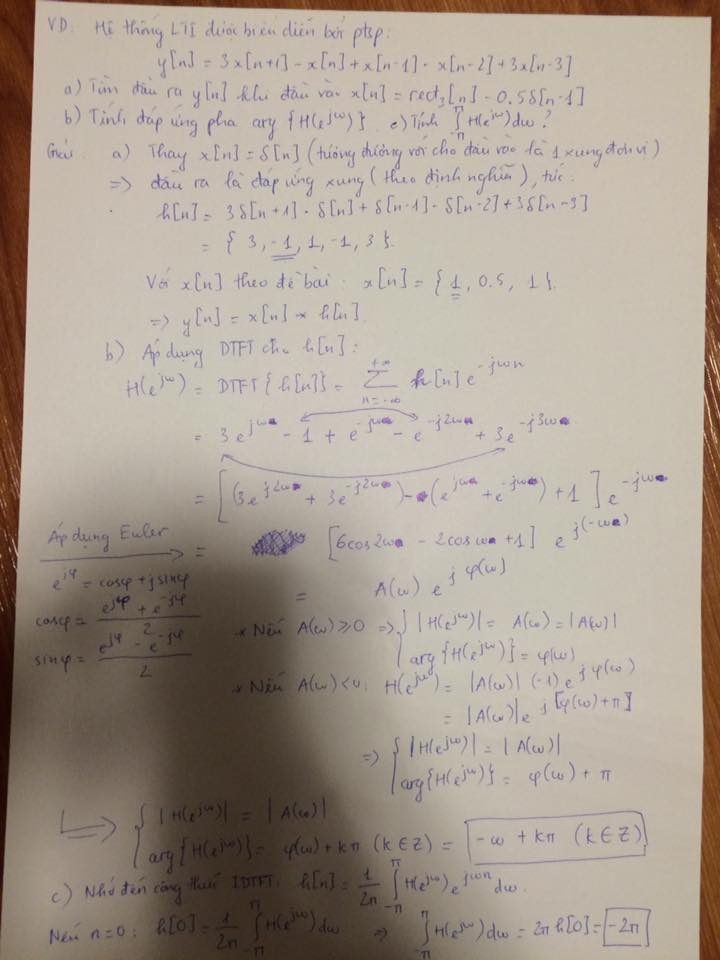 VD: Hệ thống LTI được biểu diễn bởi ptsp:
y[n] = 3x[n+1] - x[n] + x[n-1] - x[n-2] + 3x[n-3]
a) Tìm đầu ra y[n] khi đầu vào x[n] = rect₃[n] - 0.5δ[n-1]
b) Tính đáp ứng pha arg {H(e^{jω})}. c) Tính ∫_{-π}^{π} H(e^{jω})dω ?
Giải: a) Thay x[n] = δ[n] (tương đương với cho đầu vào là 1 xung đơn vị)
=> đầu ra là đáp ứng xung (theo định nghĩa), tức:
h[n] = 3δ[n+1] - δ[n] + δ[n-1] - δ[n-2] + 3δ[n-3]
= { 3, -1, 1, -1, 3 }.
Với x[n] theo đề bài: x[n] = { 1, 0.5, 1 }.
=> y[n] = x[n] * h[n]
b) Áp dụng DTFT cho h[n]:
H(e^{jω}) = DTFT{h[n]} = Σ_{n=-∞}^{+∞} h[n] e^{-jωn}
= 3e^{jω} - 1 + e^{-jω} - e^{-j2ω} + 3e^{-j3ω}
= [ (3e^{j2ω} + 3e^{-j2ω}) - (e^{jω} + e^{-jω}) + 1 ] e^{-jω}
Áp dụng Euler
= [6cos2ω - 2cosω + 1] e^{j(-ω)}
e^{jφ} = cosφ + j sinφ
= A(ω) e^{jφ(ω)}
cosφ = (e^{jφ} + e^{-jφ})/2
sinφ = (e^{jφ} - e^{-jφ})/2
* Nếu A(ω) ≥ 0 => { |H(e^{jω})| = A(ω) = |A(ω)|
arg{H(e^{jω})} = φ(ω)
* Nếu A(ω) < 0: H(e^{jω}) = |A(ω)| (-1) e^{jφ(ω)}
= |A(ω)| e^{j[φ(ω)+π]}
=> { |H(e^{jω})| = |A(ω)|
arg{H(e^{jω})} = φ(ω) + π
=> { |H(e^{jω})| = |A(ω)|
arg{H(e^{jω})} = φ(ω) + kπ (k∈Z) = -ω + kπ (k∈Z)
c) Nhớ đến công thức IDTFT: h[n] = 1/2π ∫_{-π}^{π} H(e^{jω}) e^{jωn} dω.
Nếu n=0: h[0] = 1/2π ∫_{-π}^{π} H(e^{jω})dω => ∫_{-π}^{π} H(e^{jω})dω = 2π h[0] = -2π